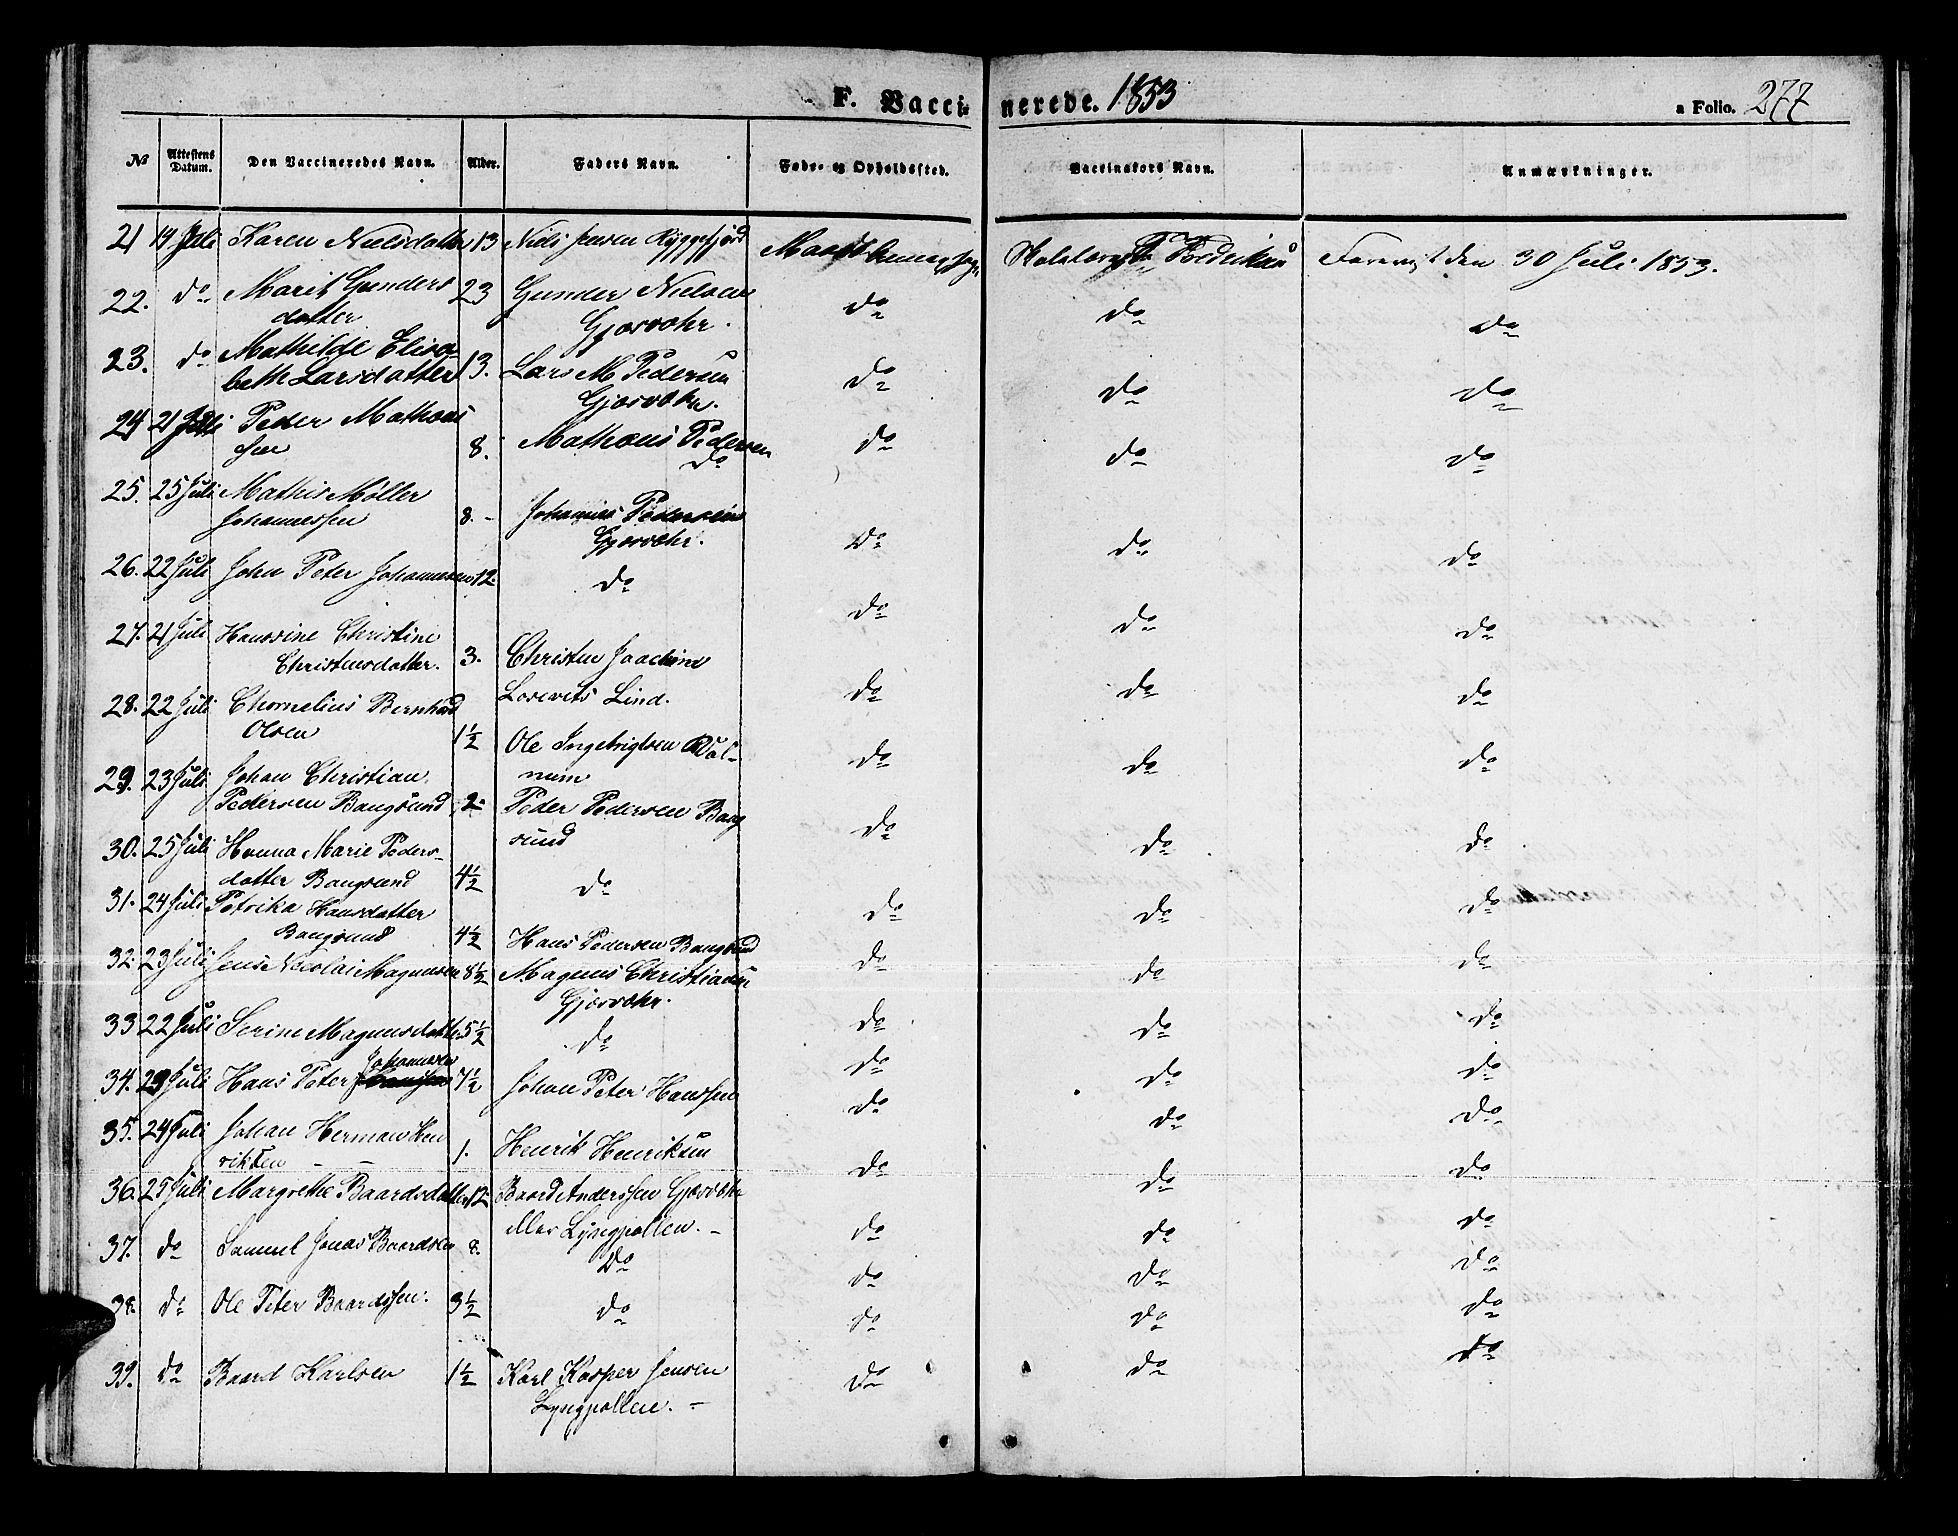 F. Vaccinerede. 1853 a Folio. 277
No Attestens Datum. Den Vaccineredes Navn. Alder. Faders Navn. Føde- og Opholdssted. Vaccinators Navn. Anmærkninger.
21 14 Juli Karen Nielsdatter 13 Niels Jensen Ryggefjord Forevist den 30 Juli 1853.
22. do Marit Gunders 23 Gunder Nielsen do do do
datter Gjæsvær.
23. do Mathilde Elisa- 13. Lars M Pedersen do do do
beth Larsdatter Gjæsvær.
24 21 Juli Peder Mathæus 8. Mathæus Pedersen do do do
sen do
25. 25 Juli Mathis Møller 8. - Johannes Pedersen do do do
Johannessen Gjæsvær.
26. 22 Juli John Peter Johannesen 12. do do do do
27. 21 Juli Hansine Christine 3. Christen Joachim do do do
Christensdatter. Lind.
28. 22 Juli Chornelius Bernhard 1½ Ole Ingebrigtsen do do do
Olsen
29. 23 Juli Johan Christian 2. Peder Pedersen Bang do do do
Pedersen Bangsund sund
30. 25 Juli Hanna Marie Peders- 4½ do do do do
datter Bangsund
31. 24 Juli Petrika Hansdatter 4½ Hans Pedersen Bangsund do do do
Bangsund
32. 23 Juli Jens Nicolai Magnusen 8½ Magnus Christiansen do do do
Gjæsvær.
33 22 Juli Serine Magnusdatter 5½ do do do do
34. 23 Juli Hans Peter Johannesen 7½ Johan Peter Hanssen do do do
35. 24 Juli Johan Herman Hen 1. Henrik Henriksen do do do
riksen
36. 25 Juli Margrethe Baardsdatter 12 Baard Anderssen Gjæsvær do do do
eller Lyngpollen. -
37. do Samuel Jonas Baardsen 8. do do do do
38. do Ole Peter Baardssen. 3½ do do do do
39. do Baard Karlsen 1½ Karl Kasper Jensen do do do
Lyngpollen. -